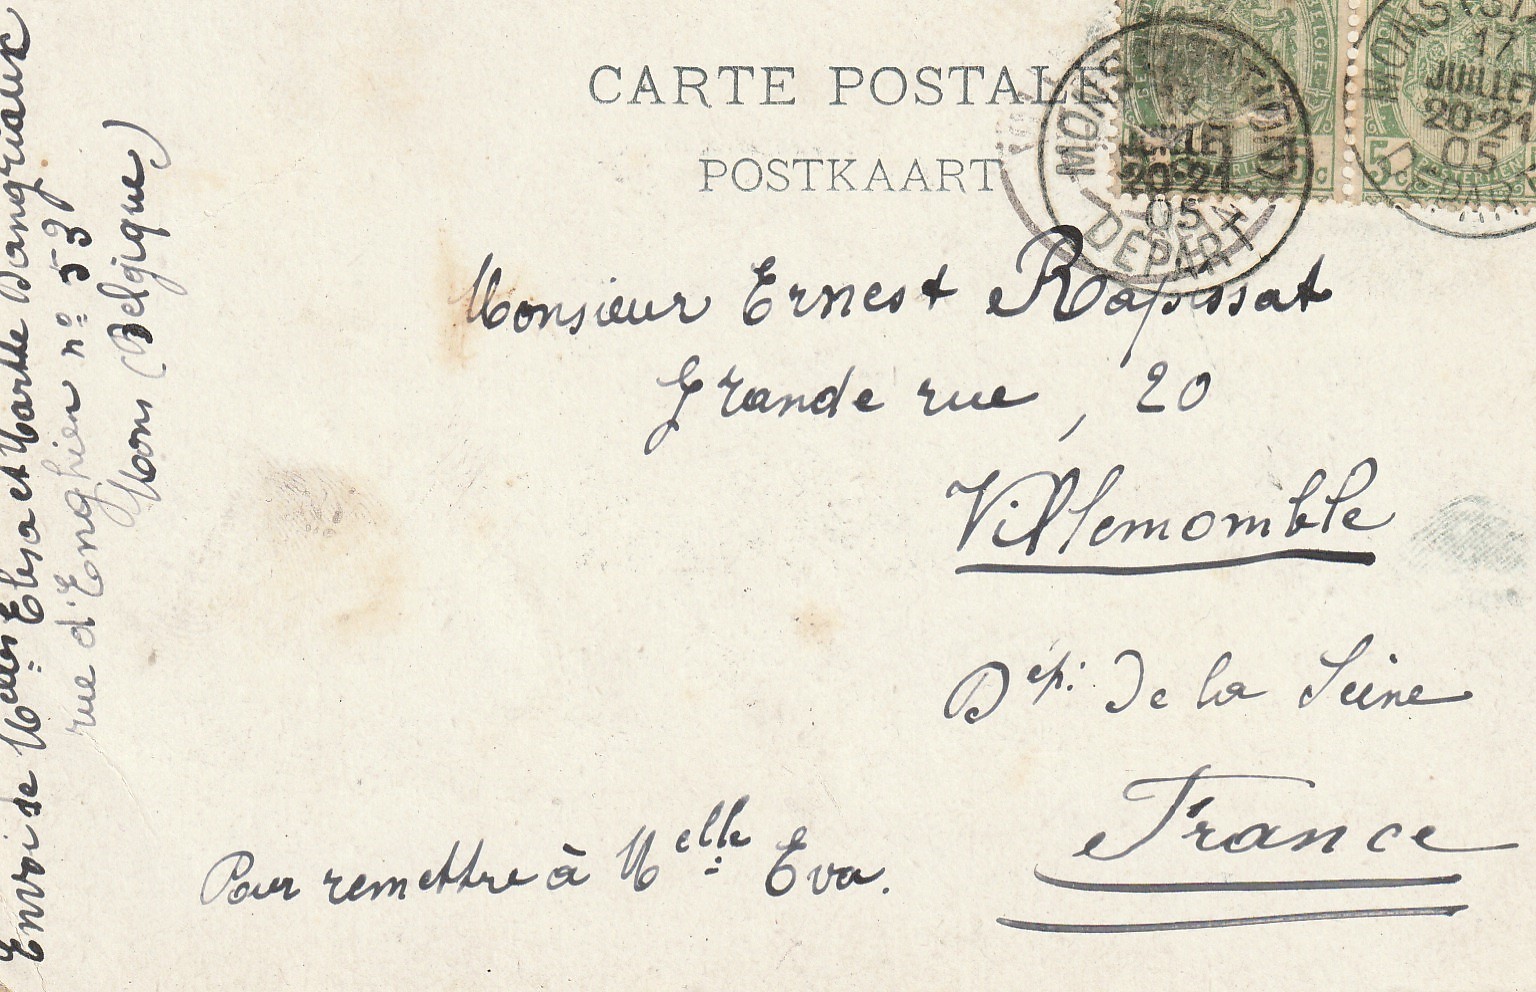 CARTE POSTALE
POSTKAART
MONS (STATION)
17
JUILLET
20-21
05
DEPART
MONS (ST
17
JUILLET
20-21
05
DEPART
5c
Monsieur Ernest Rapissat
Grande rue, 20
Villemomble
Dép: de la Seine
France
Pour remettre à Melle Eva.
Envoi de Melles Elisa et Marthe Dangriaux
rue d'Enghien no 53
Mons (Belgique)